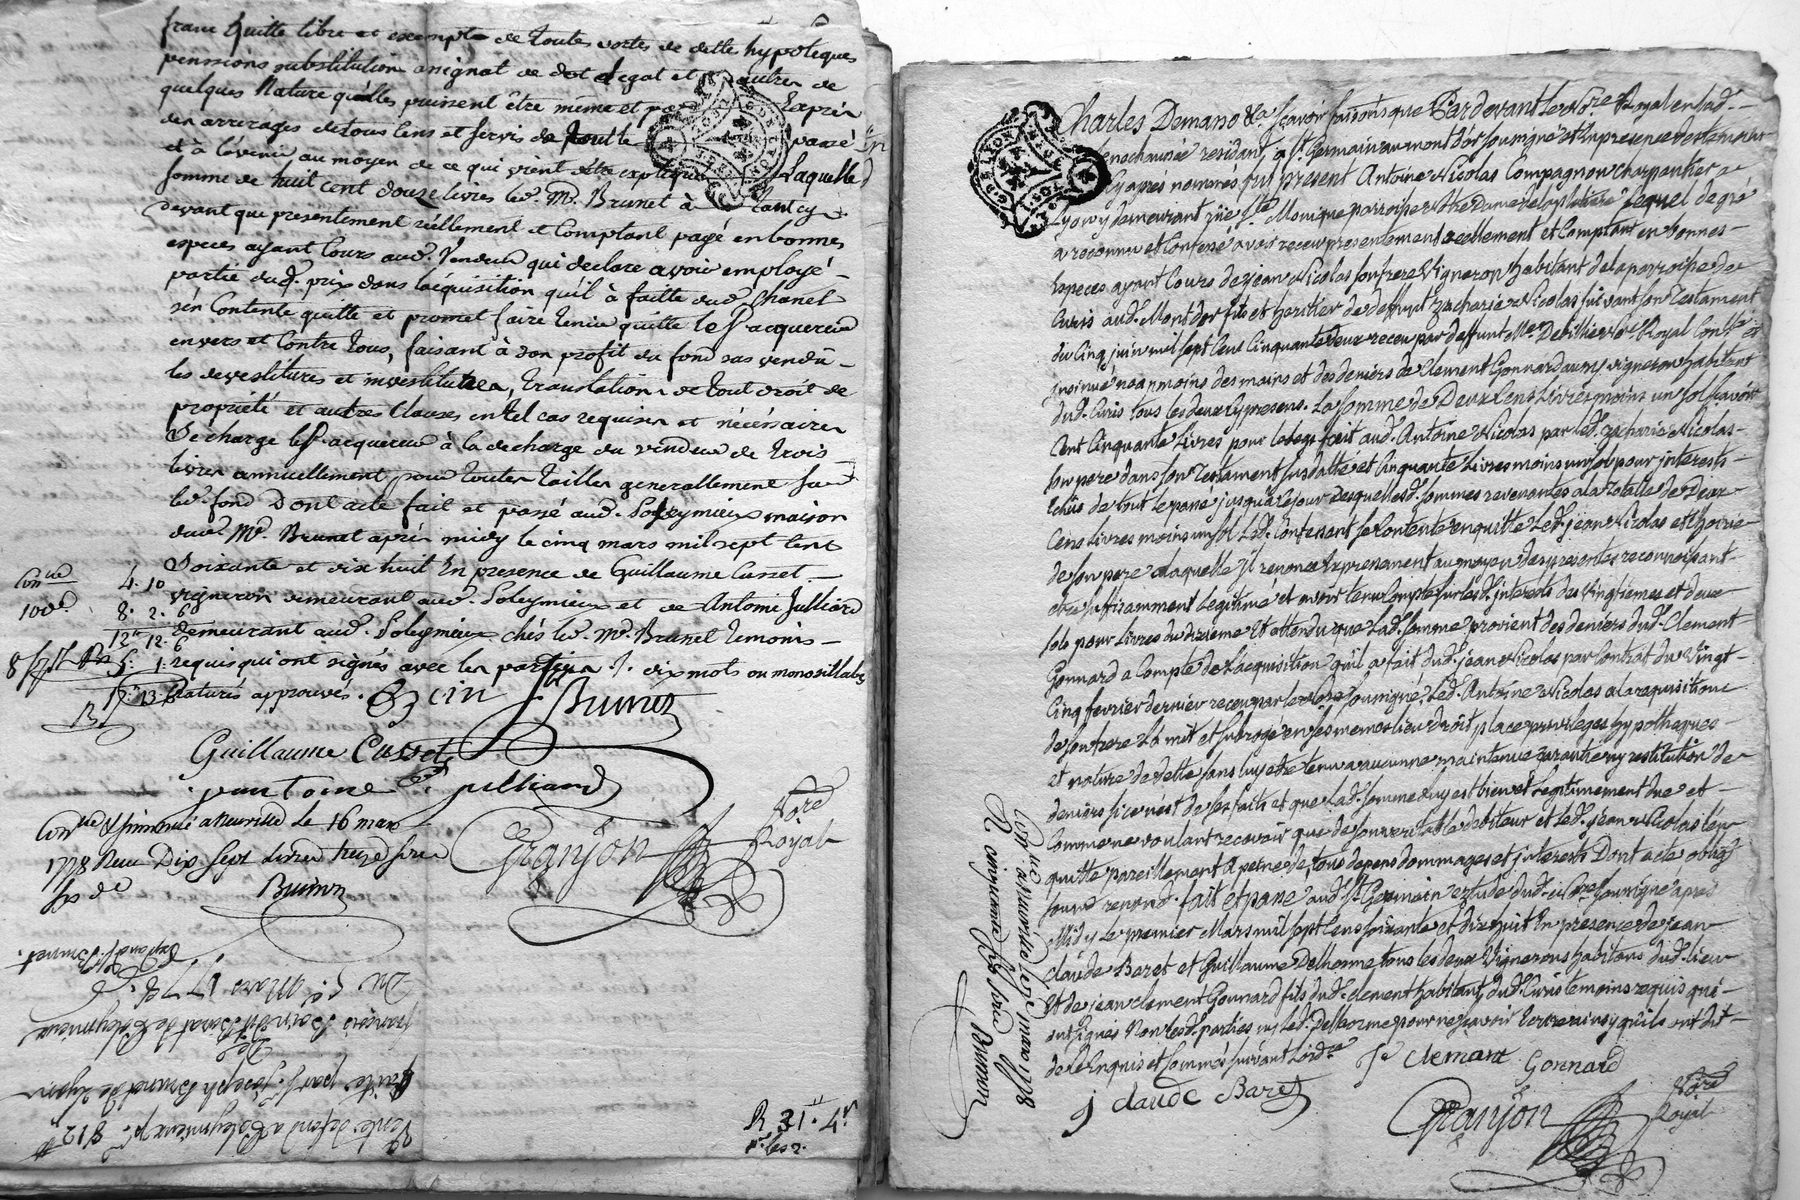 franc quitte libre et exempte de toutes sortes de dette hypoteques
pensions substitution assignat de dot legat et autres de
quelques Nature quelles puissent être même et par Exprès
des arrerages de tous Cens et servis de tout le passé
et à lavenir au moyen de ce qui vient dêtre expliqué Laquelle
somme de huit cent douse livres led. Mr. Brunet à tant cy
devant que presentement réellement et Comptant payé en bonnes
especes ayant Cours aud. Vendeur qui declare avoir employé
partie dud. prix dans lacquisition quil à faitte dud. Chanel
sen Contente quitte et promet faire tenir quitte led. Sr acquereur
envers et Contre tous, faisant à son profit du fond sus vendû
les devestitures et investitures, translation de tout droit de
proprieté et autres Clauses en tel cas requises et nécéssaires
Se charge led. Sr acquereur à la decharge du vendeur de trois
livres annuellement pour toutes tailles generallement sur
led. fond Dont acte fait et passé aud. Poleymieux maison
dud. Mr. Brunet après midy le cinq mars mil sept cent
Soixante et dix huit En presence de Guillaume Cusset
vigneron demeurant aud. Poleymieux et de Antoine Julliard
demeurant aud. Poleymieux chés led. Mr. Brunet temoins
requis qui ont signés avec les parties /. dix mots ou monosillabes
raturés approuvés.
Conlle 4. 10
100e 8. 2. 6
12 12. 6
5. 1.
17. 13. 6
Bzcin Brunet
Guillaume Cusset
antoine julliard
Conllé & insinué a neuville le 16 mars
1778 Reçu Dix Sept livres treze sous
six de
Granjon Nore Royal
Vente de fond a Poleymieux pr. 812 #
faite par Sr. joseph Brunet de Lyon
De
françois Bcin de Poleymieux
Du 5e. Mars 1778.
Expand. Sr Brunet.
R 31# 4s
pr. les 2.
Charles Demano &a sçavoir faisons que Pardevant le Nre Royal en lad.
Senechaussée residant a St. Germain au mont dor soussigné et En presence des temoins
Cy après nommés fut present Antoine Nicolas Compagnon charpentier a
Lyon y demeurant rüe Ste Monique parroisse Notre Dame de la platiere Lequel de gré
a reconnu et Confessé avoir receu presentement reellement et Comptant en bonnes
Especes ayant Cours de jean Nicolas son frere Vigneron habitant de la parroisse de
Curis aud. Mont dor fils et heritier de deffunt Zacharie Nicolas suivant son Testament
du Cinq juin mil sept Cent Cinquante deux receu par deffunt Me. Devillier Nre Royal
insinué neanmoins des mains et des deniers de Clement Gonnard aussy vigneron habitant
dud. Curis tous les deux Cy presens. La somme de Deux Cens Livres moins un sol sçavoir
Cent Cinquante Livres pour le legs fait aud. Antoine Nicolas par led. zacharie Nicolas
son pere dans son Testament susdatté et Cinquante Livres moins un sol pour interests
Echûs de tout le passé jusquà ce jour Desquelles d. sommes revenantes a la Totalle de Deux
Cens Livres moins un sol Led. Confessant se Contente en quitte Led. jean Nicolas et lhoirie
de son pere a laquelle il renonce Expressement au moyen des presentes reconnoissant
etre suffisamment Legitimé et avoir tenu Compte sur lesd. interests des Vingtiemes et deux
sols pour Livres du dixieme Et attendu que lad. somme provient des deniers dud. Clement
Gonnard a Compte de lacquisition quil a fait dud. jean Nicolas par Contrat du Vingt
Cinq fevrier dernier receu par led. Nre soussigné, Led. Antoine Nicolas a la requisition
de son frere La mit et subrogé en ses memes lieu droit place privileges hypotheques
et nature de dette sans luy etre tenu a aucune maintenüe garantie ny restitution de
deniers si ce nest de ses faits et que lad. somme Luy est bien et Legitimement düe et
Comme ne voulant recevoir que de son veritable debiteur et Led. jean Nicolas Len
quitte pareillement A peine de tous depens dommages et interests Dont acte oblig.
soum renond. fait et passé aud. St. Germain Etude dud. Nre soussigné apres
Midy Le premier Mars mil sept Cens soixante et dix huit En presence de jean
claude Beret et Guillaume Delhorme tous les deux Vignerons habitans dud. lieu
Et de jean clement Gonnard fils dud. clement habitant dud. Curis temoins requis qui
ont signés Non lesd. parties ny led. Delhorme pour ne sçavoir Ecrire ainsy quils ont dit
de ce Enquis et sommés suivant Lord.ce
J. clemant Gonnard
j claude Baret
Granjon Nore Royal
Conllé a neuville le 12 mars 1778
R cinquante six sous